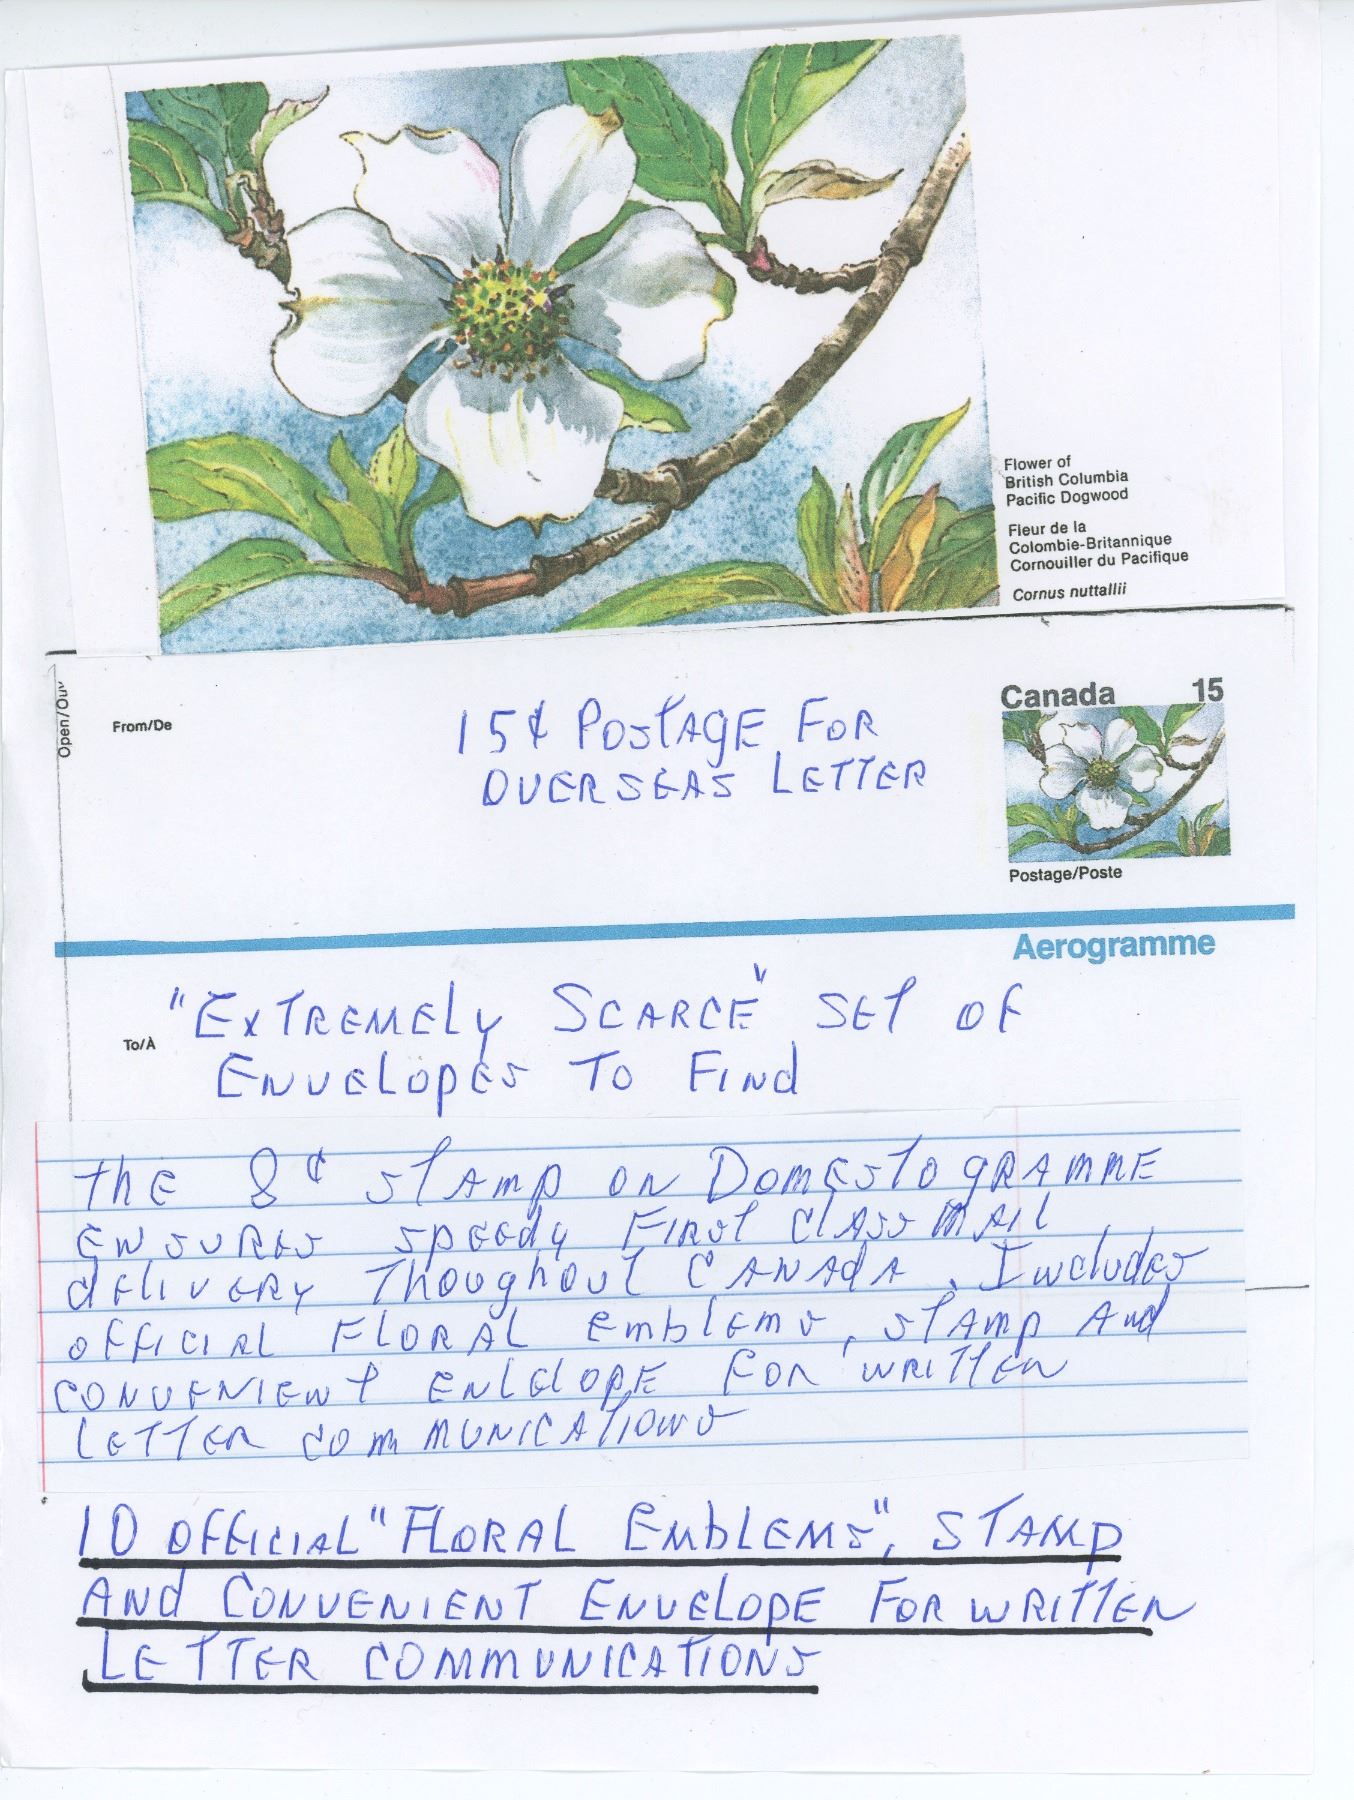 Flower of
British Columbia
Pacific Dogwood
Fleur de la
Colombie-Britannique
Cornouiller du Pacifique
Cornus nuttallii
Open/Ouv
From/De
15¢ POSTAGE FOR
OVERSEAS LETTER
Canada 15
Postage/Poste
Aerogramme
To/À
"EXTREMELY SCARCE" SET OF
ENVELOPES TO FIND
THE 8¢ STAMP ON DOMESTOGRAMME
ENSURES SPEEDY FIRST CLASS MAIL
DELIVERY THOUGHOUT CANADA. INCLUDES
OFFICIAL FLORAL EMBLEMS, STAMP AND
CONVENIENT ENLELOPE FOR WRITTEN
LETTER COMMUNICATIONS
10 OFFICIAL "FLORAL EMBLEMS", STAMP
AND CONVENIENT ENVELOPE FOR WRITTEN
LETTER COMMUNICATIONS